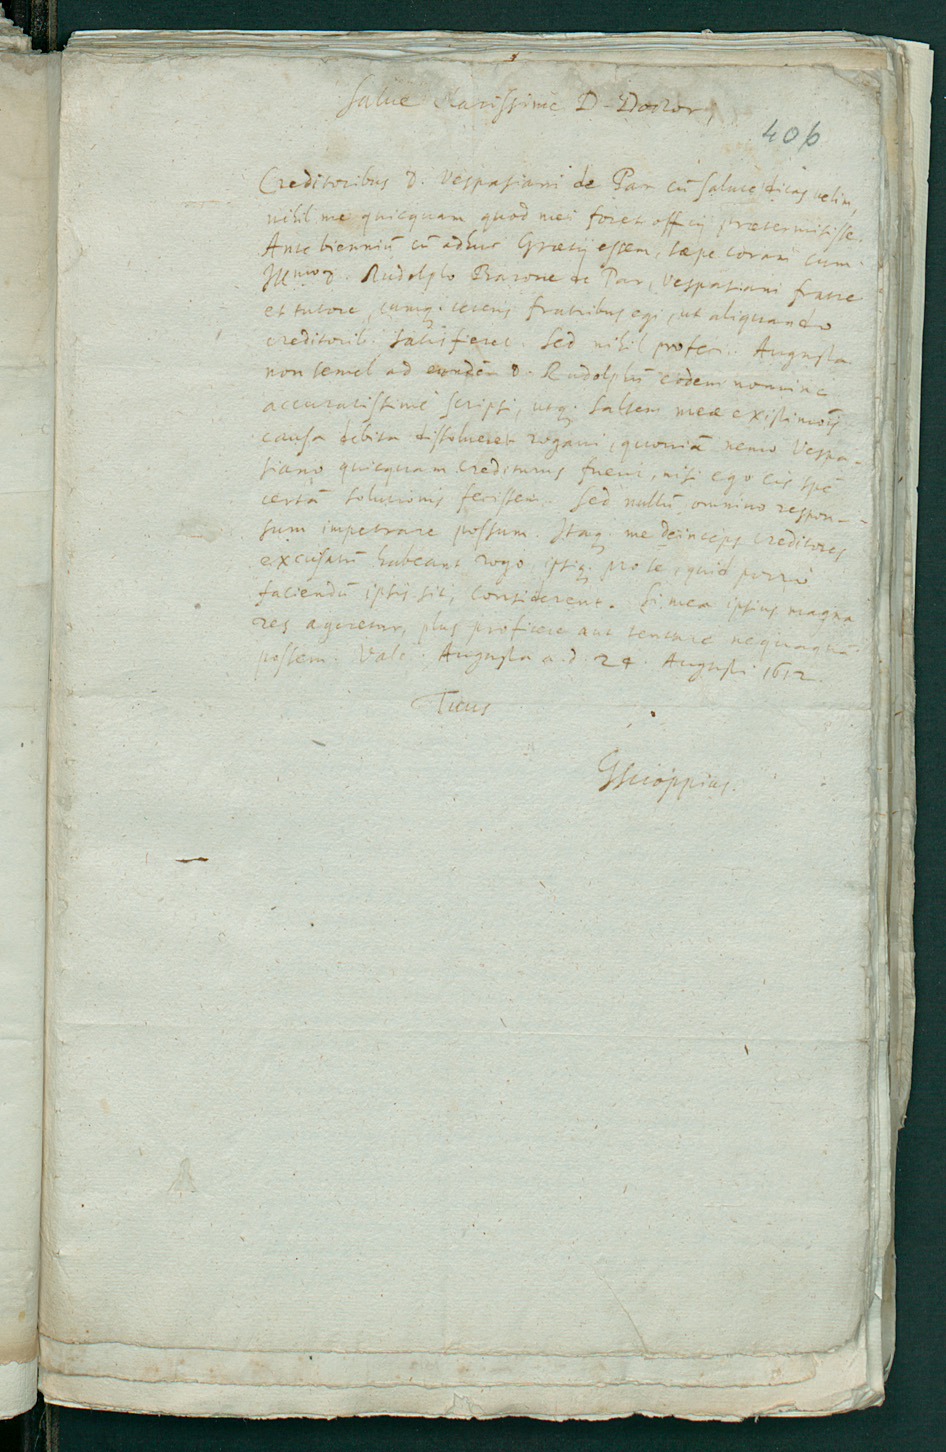 Salue Clarissime D. Doctor,
406
Creditoribus D. Vespasiani de Par cū salute dicas velim,
nihil me quicquam quod mei foret officij praetermisisse.
Ante bienniū cū adhuc Graetij essem, saepe coram cum
Illmo D. Rudolpho Barone de Par, Vespasiani fratre
et tutore, cumq; ceteris fratribus egi, ut aliquando
creditorib. satisfieret. Sed nihil profeci. Augusta
non semel ad eundē D. Rudolphū eodem nomine
accuratissime scripsi, utq. saltem meae existimōis
causa debita dissolueret rogaui, quoniā nemo Vespa-
siano quicquam crediturus fuerit, nisi ego eis spē
certā solutionis fecissem. Sed nullū omnino respon-
sum impetrare possum. Itaq. me deinceps Creditores
excusatū habeant rogo, ipsiq. pro se, quid porro
faciendū ipsis sit, considerent. Si mea ipsius magna
res ageretur, plus proficere aut tentare nequaquā
possem. Vale. Augusta a. d. 24. Augusti 1612.
Tuus
GScioppius.